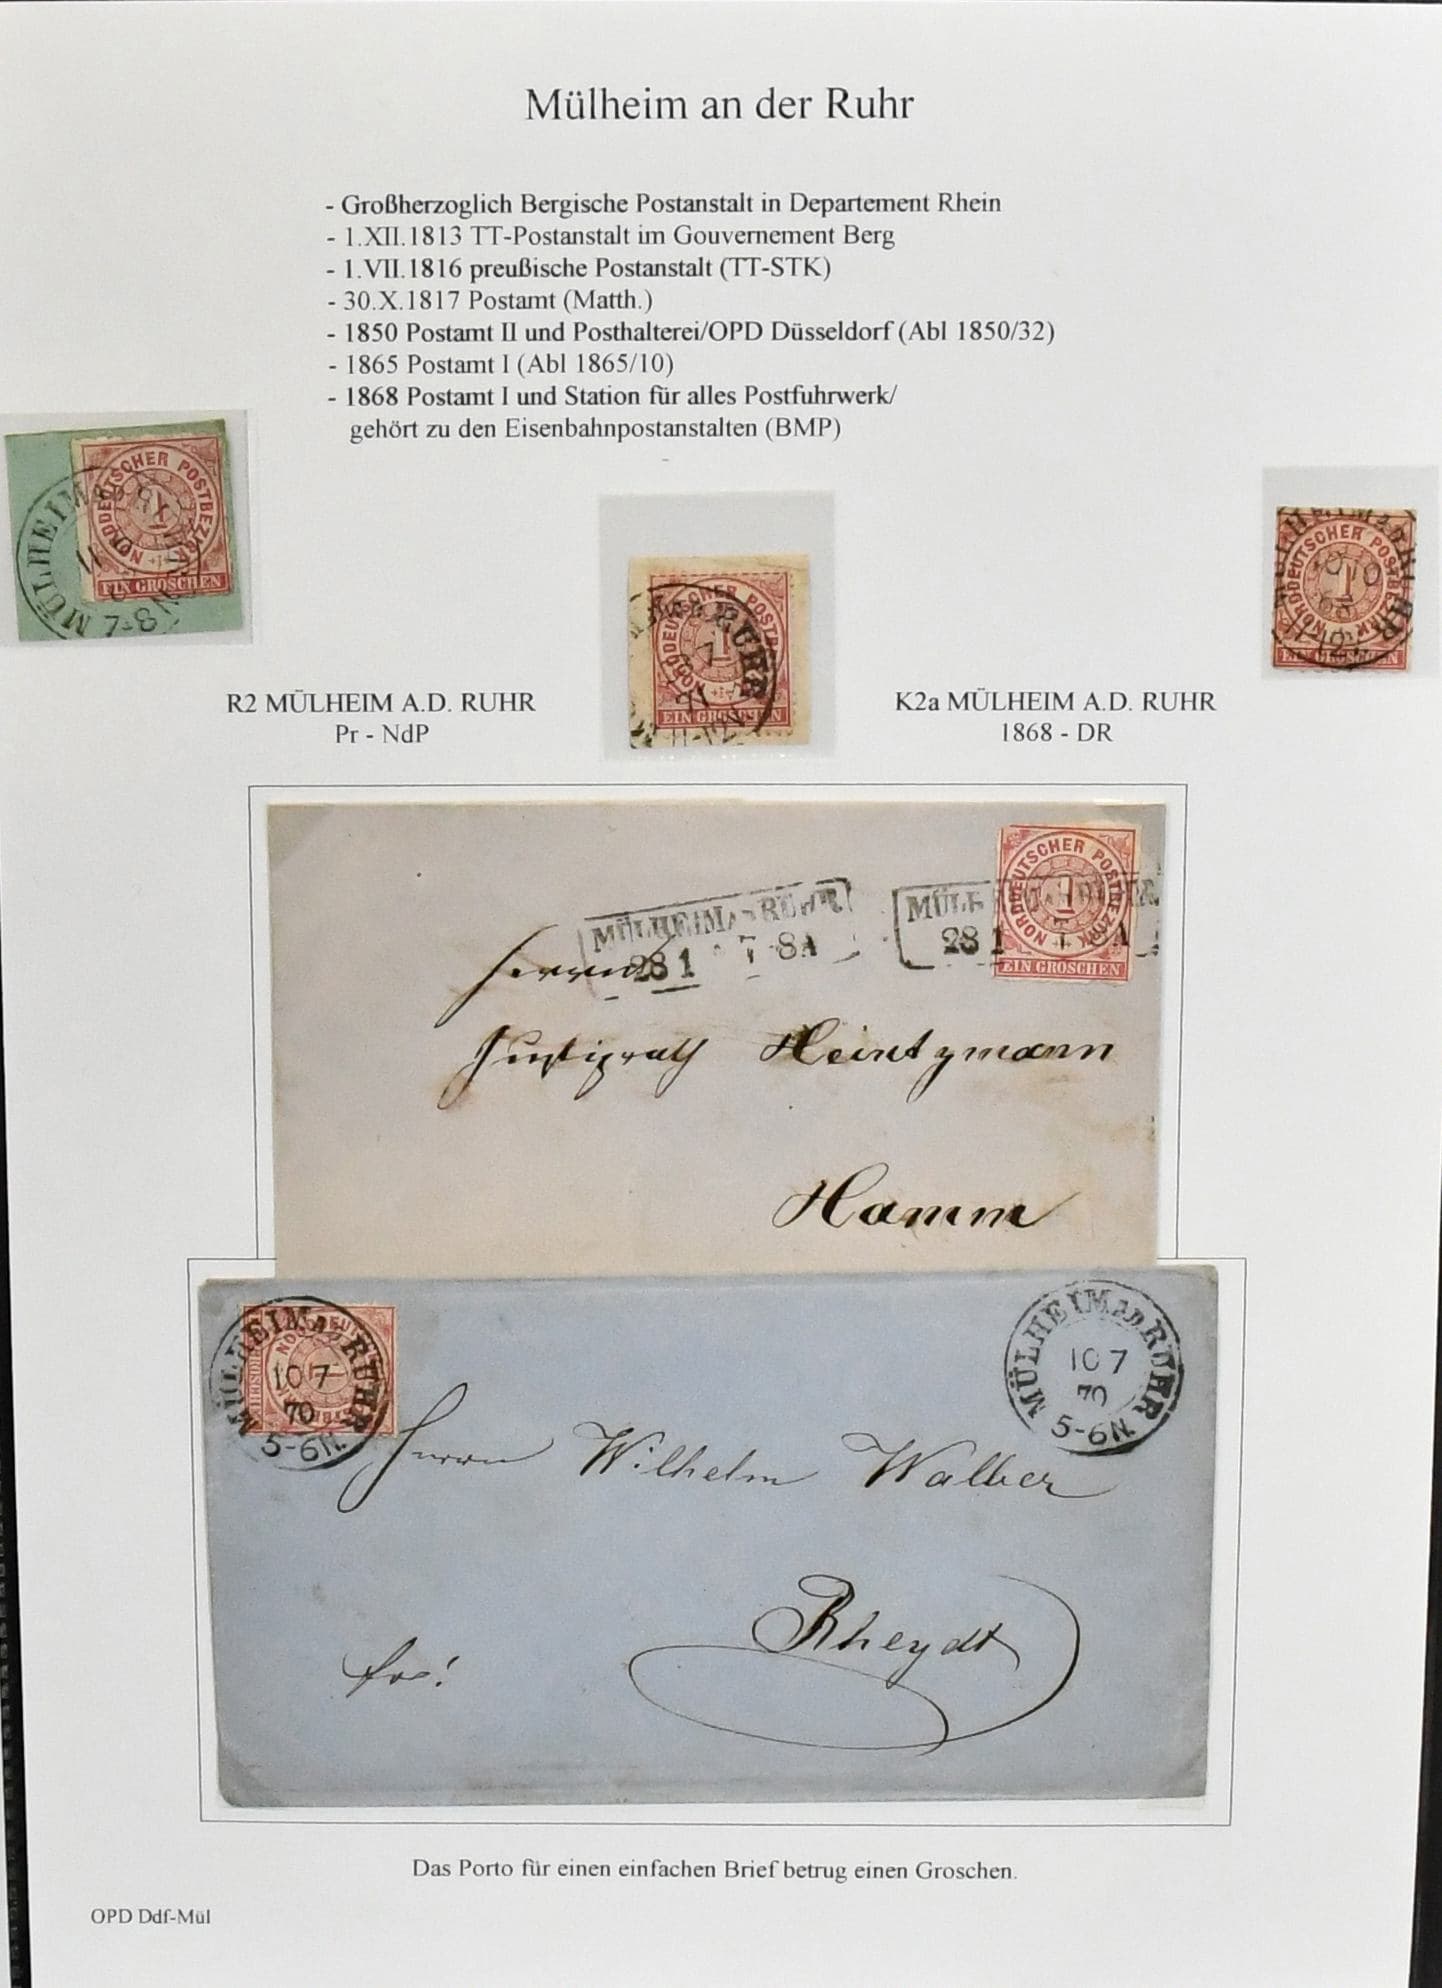 Mülheim an der Ruhr
- Großherzoglich Bergische Postanstalt in Departement Rhein
- 1.XII.1813 TT-Postanstalt im Gouvernement Berg
- 1.VII.1816 preußische Postanstalt (TT-STK)
- 30.X.1817 Postamt (Matth.)
- 1850 Postamt II und Posthalterei/OPD Düsseldorf (Abl 1850/32)
- 1865 Postamt I (Abl 1865/10)
- 1868 Postamt I und Station für alles Postfuhrwerk/
gehört zu den Eisenbahnpostanstalten (BMP)
NORDDEUTSCHER POSTBEZIRK
1
EIN GROSCHEN
MÜLHEIM
7-8N
NORDDEUTSCHER POSTBEZIRK
1
EIN GROSCHEN
RUHR
71
NORDDEUTSCHER POSTBEZIRK
1
EIN GROSCHEN
R2 MÜLHEIM A.D. RUHR
Pr - NdP
K2a MÜLHEIM A.D. RUHR
1868 - DR
NORDDEUTSCHER POSTBEZIRK
1
EIN GROSCHEN
MÜLHEIM AD RUHR
28 1 7-8A
MÜLH
28 1 8A
Herrn
Justizrath Heintzmann
Hamm
MÜLHEIM AD RUHR
10 7
70
5-6N.
MÜLHEIM AD RUHR
10 7
70
5-6N.
Herrn Wilhelm Walber
Rheydt
Das Porto für einen einfachen Brief betrug einen Groschen.
OPD Ddf-Mül